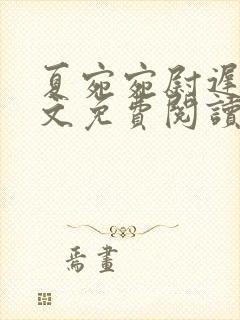 夏宛宛尉遲
文免費閱讀
焉畫